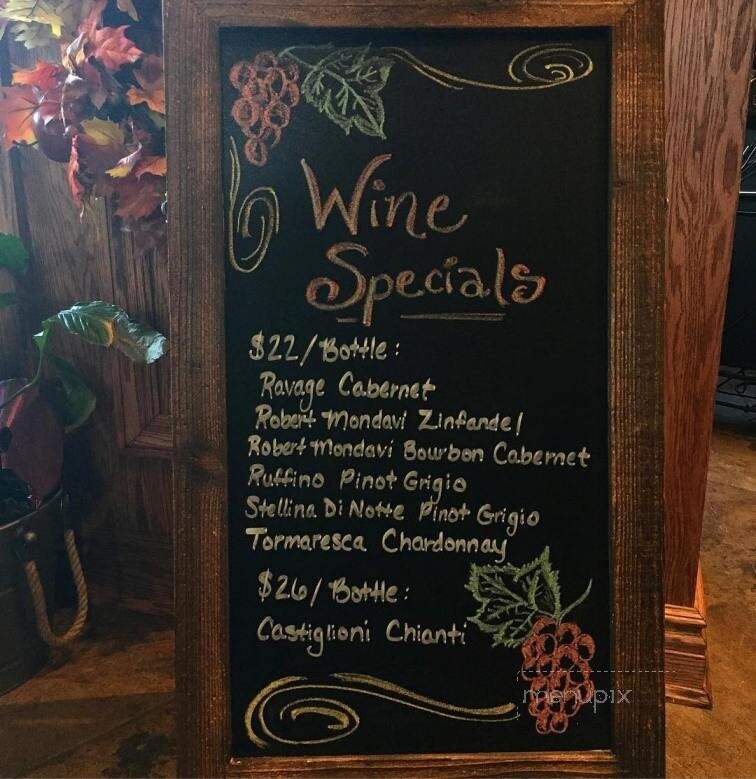 Wine
Specials
$22/Bottle:
Ravage Cabernet
Robert Mondavi Zinfandel
Robert Mondavi Bourbon Cabernet
Ruffino Pinot Grigio
Stellina Di Notte Pinot Grigio
Tormaresca Chardonnay
$26/Bottle:
Castiglioni Chianti
menupix